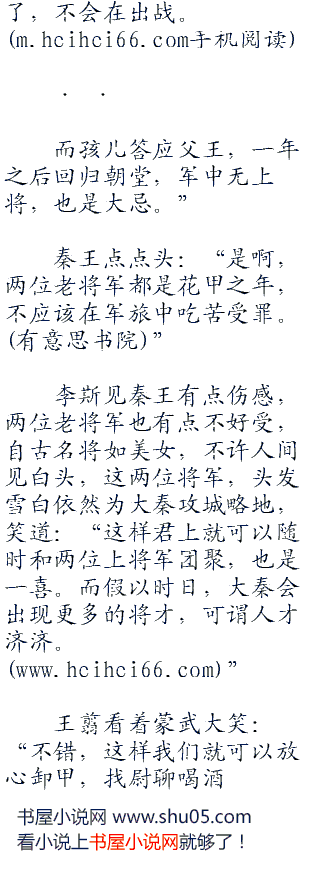 了，不会在出战。
(m.hcihci66.com手机阅读)
. .
而孩儿答应父王，一年
之后回归朝堂，军中无上
将，也是大忌。”
秦王点点头：“是啊，
两位老将军都是花甲之年，
不应该在军旅中吃苦受罪。
(有意思书院)”
李斯见秦王有点伤感，
两位老将军也有点不好受，
自古名将如美女，不许人间
见白头，这两位将军，头发
雪白依然为大秦攻城略地，
笑道：“这样君上就可以随
时和两位上将军团聚，也是
一喜。而假以时日，大秦会
出现更多的将才，可谓人才
济济。
(www.hcihci66.com)”
王翦看着蒙武大笑：
“不错，这样我们就可以放
心卸甲，找尉聊喝酒
书屋小说网 www.shu05.com
看小说上书屋小说网就够了！